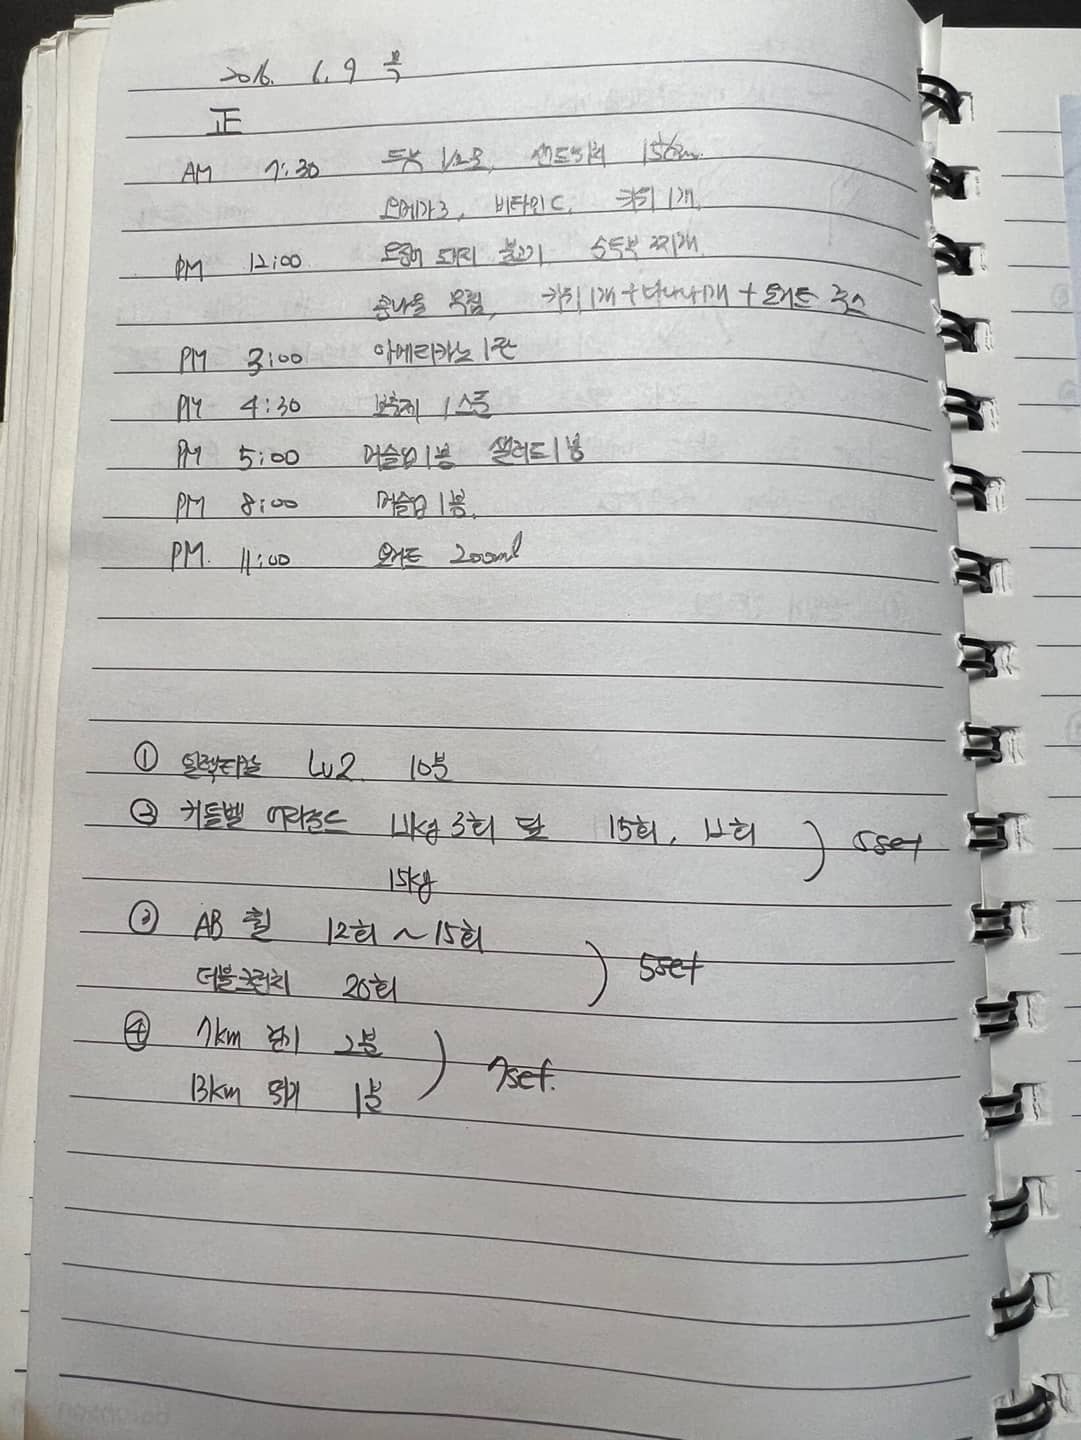 2016. 6. 9 목
正
AM 7:30 두부 1/2모, 샌드위치 15cm
오메가3, 비타민C, 키위 1개
PM 12:00 오징어 돼지 불고기 순두부 찌개
콩나물 무침, 키위 1개 + 바나나 1개 + 오트 주스
PM 3:00 아메리카노 1잔
PM 4:30 보충제 1스푼
PM 5:00 머슬업 1봉 샐러드 1봉
PM 8:00 머슬업 1봉.
PM. 11:00 오트 200ml
① 일렉티컬 Lv2. 10분
② 커틀벨 어라운드 12kg 3회 턴 15회, 12회 ) 5set
15kg
③ AB 휠 12회 ~ 15회 ) 5set
더블크런치 20회
④ 7km 걷기 2분 ) 7set.
13km 뛰기 1분